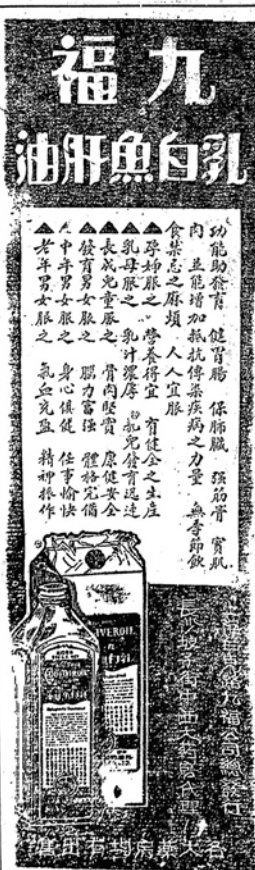 九福
乳白魚肝油
功能助發育 健胃腸 保肺臟 强筋骨 實肌
肉 並能增加抵抗傳染疾病之力量 無季節飲
食禁忌之麻煩 人人宜服
▲孕婦服之 營養得宜 有健全之生產
▲乳母服之 乳汁濃厚 乳兒發育迅速
▲長成兒童服之 骨肉堅實 康健安全
▲發育男女服之 腦力富强 體格完備
▲中年男女服之 身心俱健 任事愉快
▲老年男女服之 氣血充盈 精神振作
各大藥房均有出售